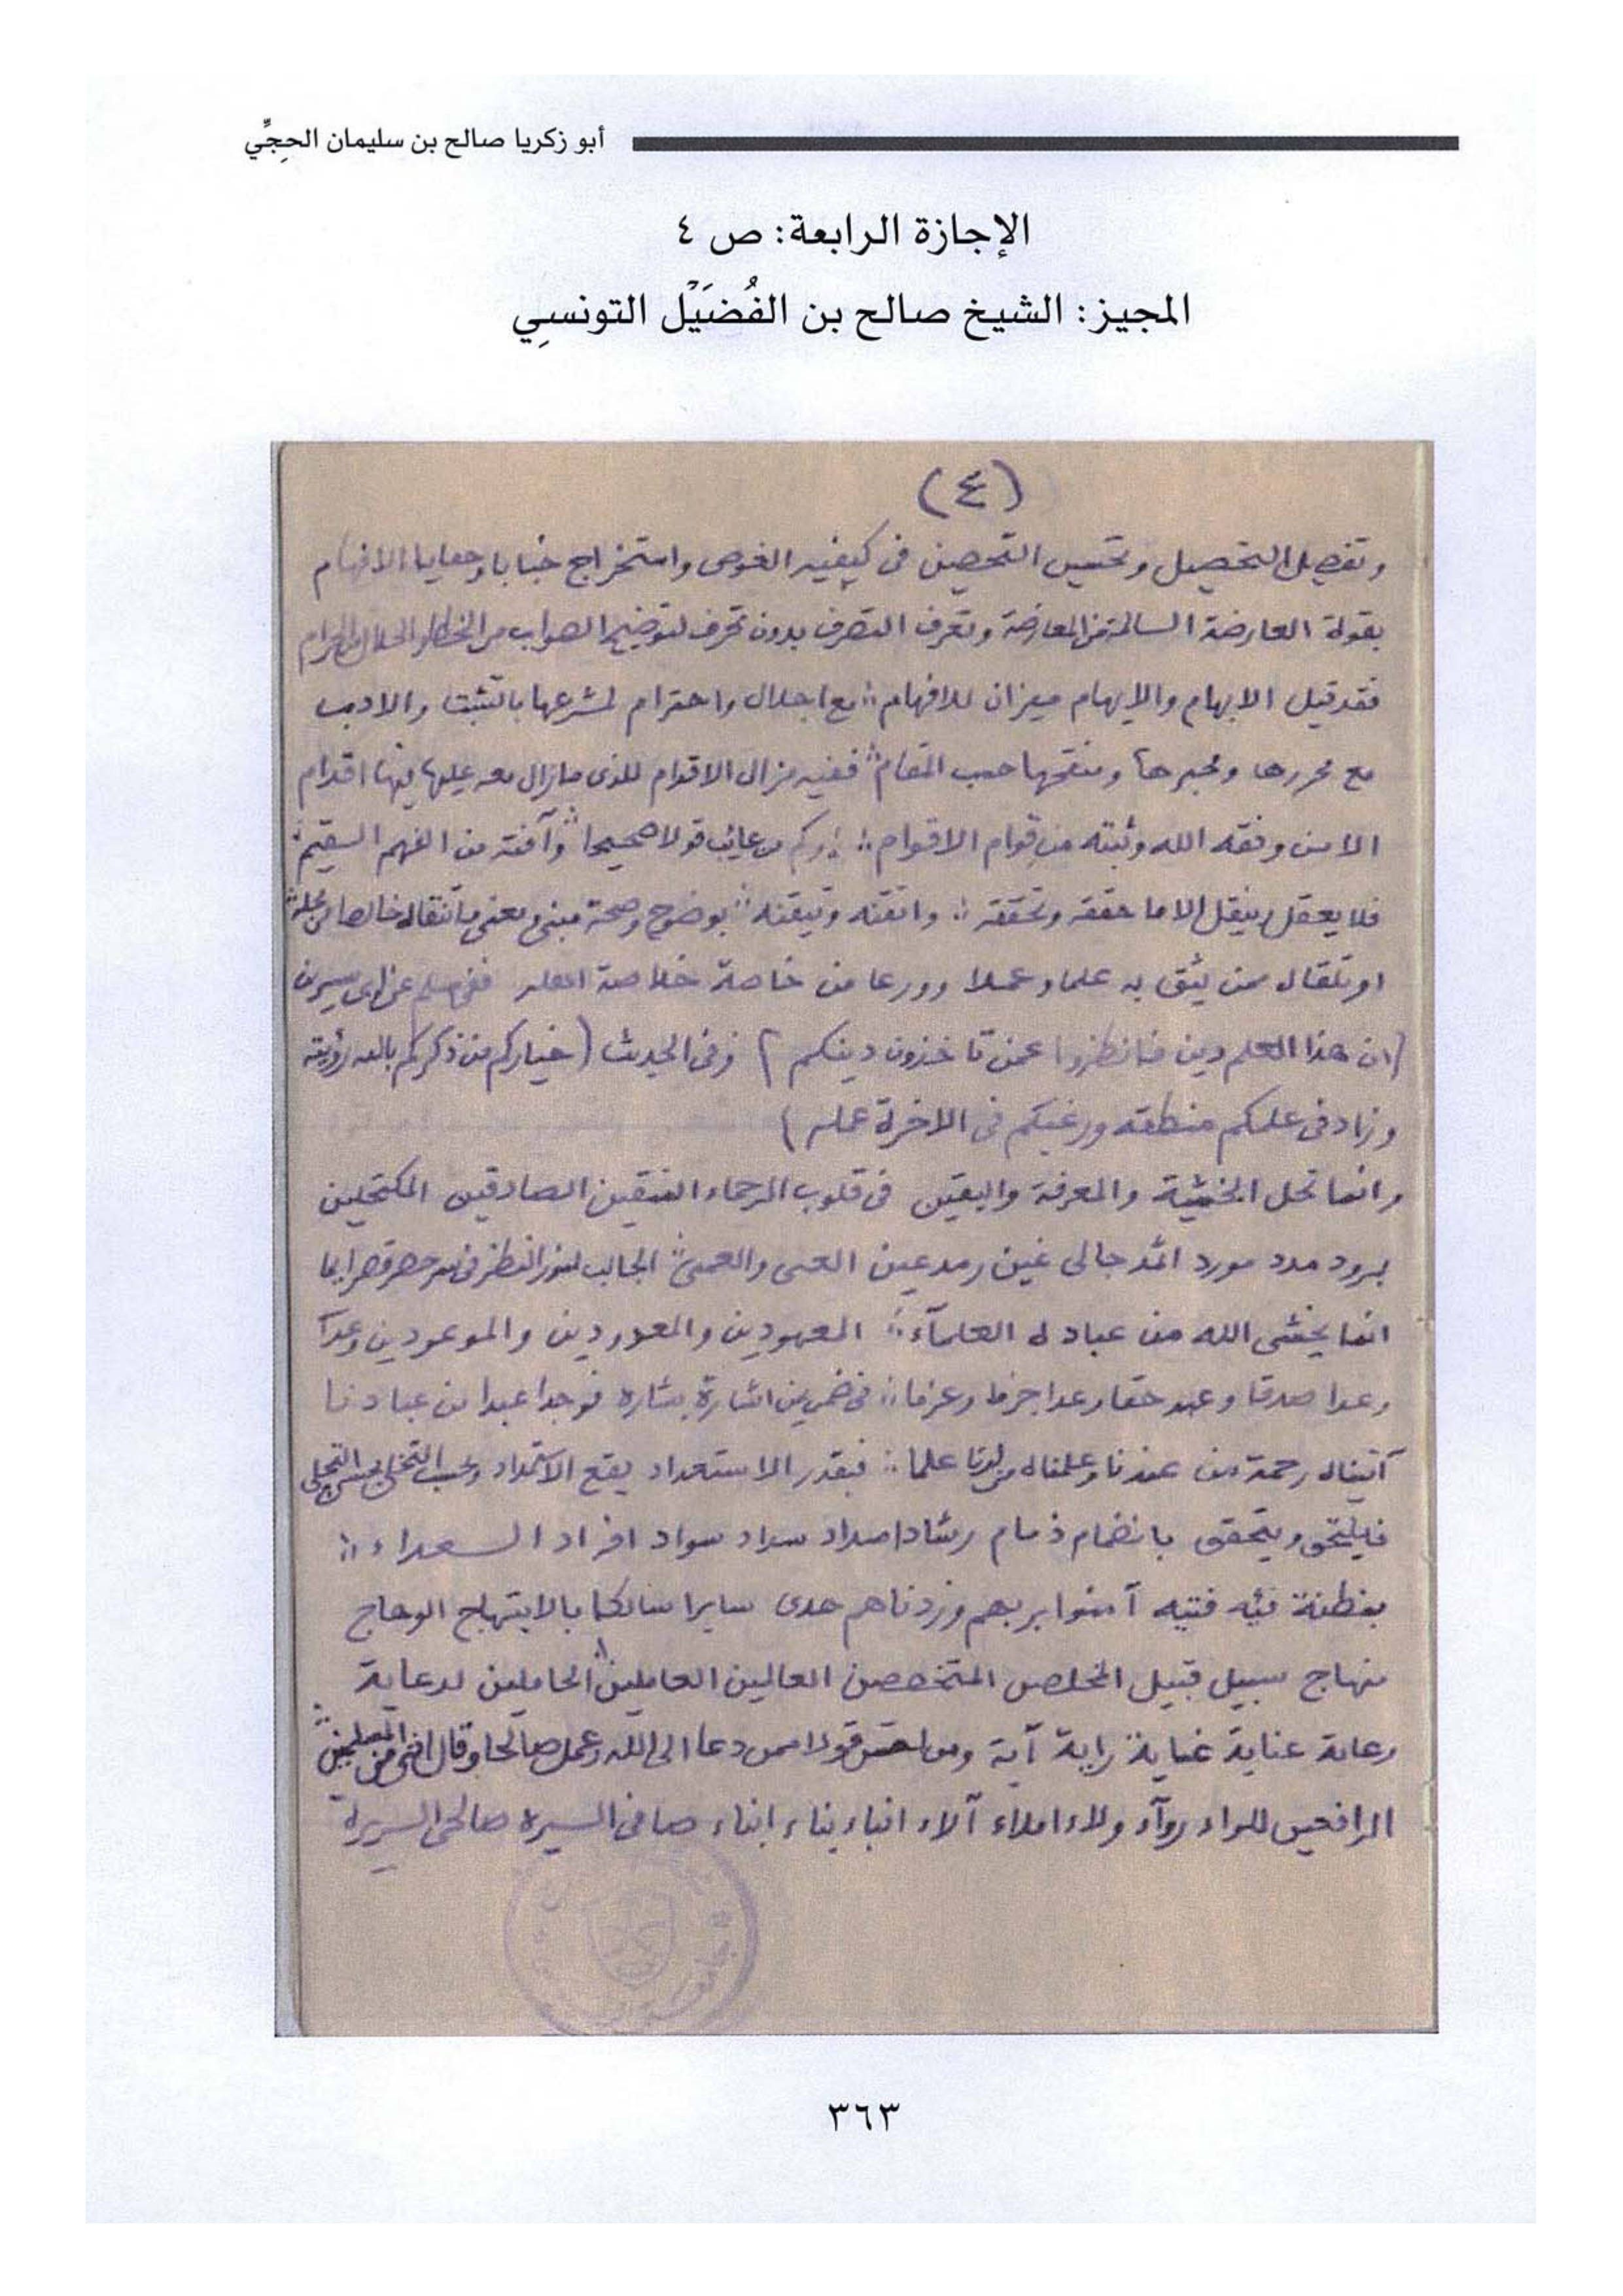 أبو زكريا صالح بن سليمان الحجِّي
الإجازة الرابعة: ص ٤
المجيز: الشيخ صالح بن الفُضَيْل التونسِي
(٤)
وتفصيل التحصيل وتحسين التحصين في كيفية الغوص واستخراج خبايا وخفايا الافهام
بقوة العارضة السالمة من المعارضة وتعرف التصرف بدون تحرف لتوضيح الصواب من الخطا والحلال من الحرام
فقد قيل الابهام والايهام ميزان للافهام مع اجلال واحترام لمشرعها بالتثبت والادب
مع محررها ومحبرها ومنقحها حسب المقام ففيه مزال الاقدام للذى مازال معه عليها فيها اقدام
الا من وفقه الله وثبته من قوام الاقوام وكم من عائب قولا صحيحا وآفته من الفهم السقيم
فلا يعقل وينقل الا ما حققه وتحققه واتقنه وتيقنه بوضوح وصحة مبنى ومعنى بانتقاله خالصا من محله
او تلقاه ممن يثق به علما وعملا وورعا من خاصة خلاصة اهله ففى مسلم عن ابن سيرين
(ان هذا العلم دين فانظروا عمن تاخذون دينكم) وفى الحديث (خياركم من ذكركم بالله رؤيته
وزاد فى علمكم منطقه ورغبكم فى الاخرة عمله)
وانما تحل الخشية والمعرفة واليقين فى قلوب الرحماء المتقين الصادقين المكتحلين
برود مدد مورد اثمد جالى غين رمد عين العمى والعمى الجالب لنور النظر فى سر حصر قصر ايما
انما يخشى الله من عباده العلمآء المعهودين والمعدودين والموعودين وعدا
وعدا صدقا وعهد حقا وعدا جزما وعزما فى ضمن اشارة بشارة فوجدا عبدا من عبادنا
آتيناه رحمة من عندنا وعلمناه من لدنا علما فبقدر الاستعداد يقع الاستمداد وبحسب التخلى يحسن التحلى
فيلتحق ويتحقق بانضمام ذمام رشاد امداد سداد سواد افراد السعداء
بفطنة فئه فتيه آمنوا بربهم وزدناهم هدى سايرا سالكا بالابتهاج الوهاج
منهاج سبيل قبيل الخلص المتخصصين العالين العاملين الحاملين لدعاية
رعاية عناية غياية راية آية ومن احسن قولا ممن دعا الى الله وعمل صالحا وقال اننى من المسلمين
الرافعين للواء روآء ولاء املاء آلاء انباء بناء ابناء صافى السيرة صالحى السريرة
٣٦٣